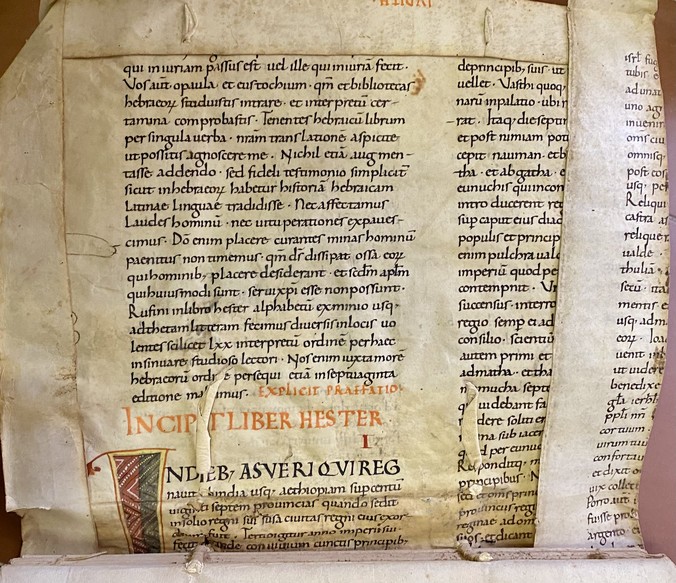 qui iniuriam passus est vel ille qui iniuria fecit.
Vos aut opaula · et eustochium · qm et bibliothecas
hebraeoꝝ studuistis intrare · et interpretū cer-
tamina comprobastis · Tenentes hebraicū librum
per singula verba · nram translatione aspicite
ut possitis agnoscere me · Nichil etiā augmen-
tasse addendo · sed fideli testimonio simplicit
sicut in hebraeoꝝ habetur historiā hebraicam
Latinae linguae tradidisse · Nec affectamus
Laudes hominū · nec vituperationes expaues-
cimus · Dō enim placere curantes minas hominū
paenitus non timemus · qm dr̄ dissipat ossa eoꝝ
qui hominib; placere desiderant · et sedm aplm
qui huiusmodi sunt · serui xpi esse non possunt.
Rufini in libro hester alphabetū ex minio usq·
ad thetam litteram fecimus diuersis in locis uo
lentes scilicet lxx interpretū ordinē per haec
insinuare studioso lectori · Nos enim iuxta morē
hebraicorū ordine persequi etiā in septuaginta
editione malumus · EXPLICIT PRAEFATIO
INCIPIT LIBER HESTER
I
INDIEB; ASVERI QVI REG
nauit india usq· aethiopiam sup centū
viginti septem provincias quando sedit
in solio regni sui susa ciuitas regni eius exor-
diū fuit · Tertio igitur anno imperii sui
fecit grande conuiuium cunctis principib·
de principib; suis · ut
vellet · Vasthi quoq
naru in palatio · ubi r
rat · Itaq; die septi
et post nimiam pot
cepit · nauman · et b
tha · et abgatha · e
eunuchis qui in con
intro ducerent reg
sup caput eius diad
populis et princip
enim pulchra val
imperiū quod pe
contempnit · Un
succensus · interro
regio semp ei ad
consilio · scientiū
autem primi et
admatha · et tha
mucha septe
qui videbant fa
dere soliti er
na sub iace
d per cunc
Responditq· m
principibus · N
sed et om̄s prin
provincias regis
reginae ad om̄
suos · et dicant
isrl fuc
tubis e
adunat
uno agr
inuenir
om̄s ciu
omnisq·
post eos
usq· pe
Reliqui
castra as
relique r
valde ·
thuliā ·
secū · ita
mentis e
usq· adm
eoꝝ · Ioa
uenit in
ut videre
benedixe
gla ierhl
ppli nri
cor tuum ·
virum tuū
confortau
et dixit o
vix collec
Porro aut
fuisse pro
argento · et